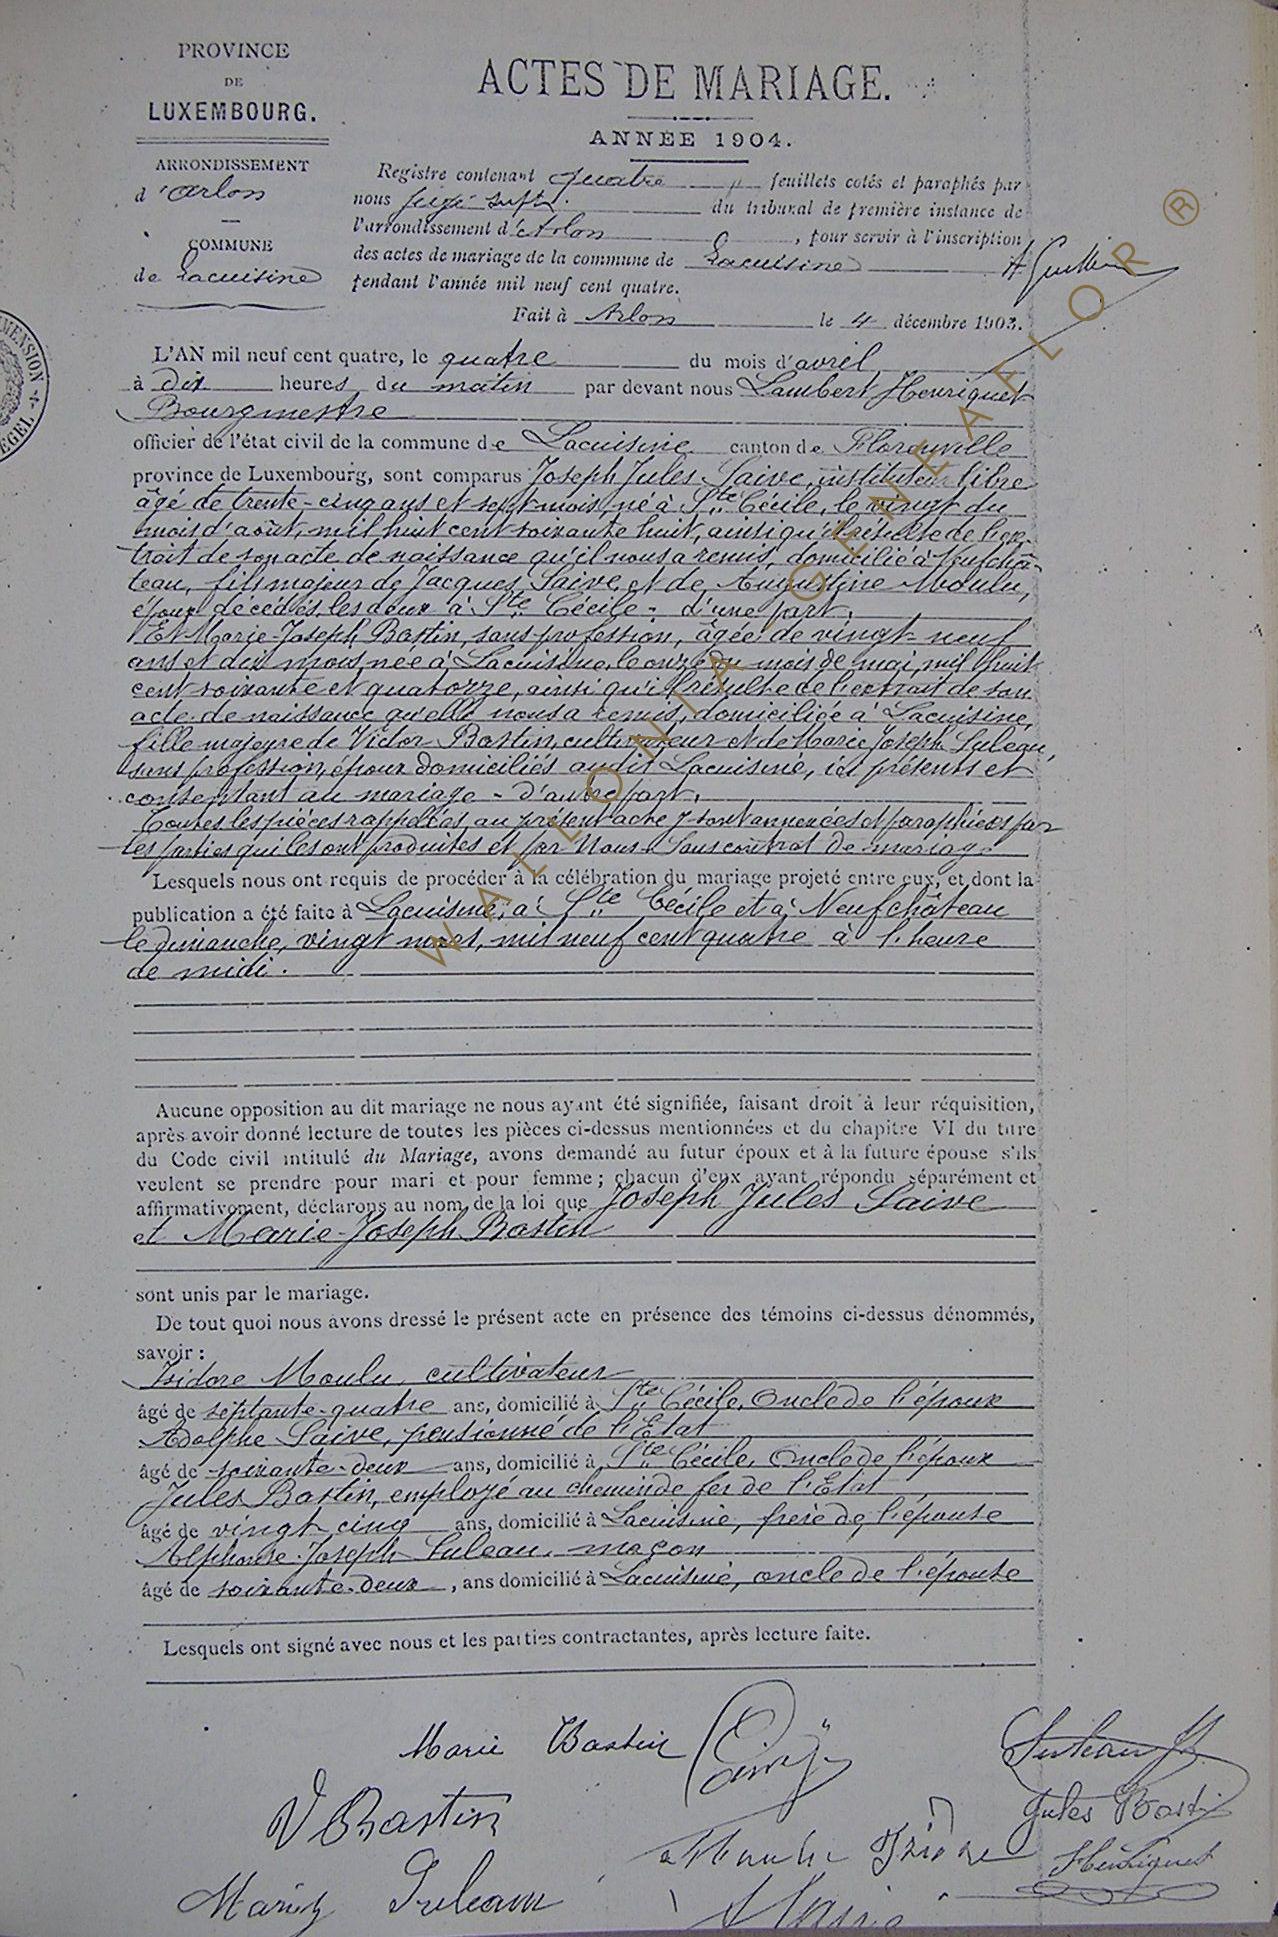 PROVINCE
DE
LUXEMBOURG.
ARRONDISSEMENT
d'Arlon
COMMUNE
de Lacuisine
ACTES DE MARIAGE.
ANNÉE 1904.
Registre contenant quatre feuillets cotés et paraphés par
nous juge supt. du tribunal de première instance de
l'arrondissement d'Arlon, pour servir à l'inscription
des actes de mariage de la commune de Lacuisine
pendant l'année mil neuf cent quatre.
Fait à Arlon le 4 décembre 1903.
L'AN mil neuf cent quatre, le quatre du mois d'avril
à dix heures du matin par devant nous Lambert Henriquet
Bourgmestre
officier de l'état civil de la commune de Lacuisine canton de Florenville
province de Luxembourg, sont comparus Joseph Jules Saive, instituteur libre
âgé de trente-cinq ans et sept mois, né à Ste Cécile, le vingt du
mois d'août, mil huit cent soixante huit, ainsi qu'il résulte de l'ex-
trait de son acte de naissance qu'il nous a remis, domicilié à Neufchâ-
teau, fils majeur de Jacques Saive et de Augustine Moulu,
époux décédés les deux à Ste Cécile - d'une part,
Et Marie-Joseph Bastin, sans profession, âgée de vingt-neuf
ans et dix mois, née à Lacuisine, le onze du mois de mai, mil huit
cent soixante et quatorze, ainsi qu'il résulte de l'extrait de son
acte de naissance qu'elle nous a remis, domiciliée à Lacuisine,
fille majeure de Victor Bastin, cultivateur et de Marie Joseph Suleau,
sans profession, époux domiciliés audit Lacuisine, ici présents et
consentant au mariage - d'autre part.
Toutes les pièces rappelées au présent acte y sont annexées et paraphées par
les parties qui les ont produites et par Nous. Sans contrat de mariage
Lesquels nous ont requis de procéder à la célébration du mariage projeté entre eux, et dont la
publication a été faite à Lacuisine, à Ste Cécile et à Neufchâteau
le dimanche, vingt mars, mil neuf cent quatre à l'heure
de midi.
Aucune opposition au dit mariage ne nous ayant été signifiée, faisant droit à leur réquisition,
après avoir donné lecture de toutes les pièces ci-dessus mentionnées et du chapitre VI du titre
du Code civil intitulé du Mariage, avons demandé au futur époux et à la future épouse s'ils
veulent se prendre pour mari et pour femme ; chacun d'eux ayant répondu séparément et
affirmativement, déclarons au nom de la loi que Joseph Jules Saive
et Marie-Joseph Bastin
sont unis par le mariage.
De tout quoi nous avons dressé le présent acte en présence des témoins ci-dessus dénommés,
savoir :
Isidore Moulu, cultivateur
âgé de septante-quatre ans, domicilié à Ste Cécile, Oncle de l'époux
Adolphe Saive, pensionné de l'Etat
âgé de soixante-deux ans, domicilié à Ste Cécile, Oncle de l'époux
Jules Bastin, employé au chemin de fer de l'Etat
âgé de vingt cinq ans, domicilié à Lacuisine, frère de l'épouse
Alphonse-Joseph Suleau, maçon
âgé de soixante-deux, ans domicilié à Lacuisine, oncle de l'épouse
Lesquels ont signé avec nous et les parties contractantes, après lecture faite.
Marie Bastin
Suleau
V Bastin
Jules Bastin
Henriquet
Suleau
WALLONIA GENEAFLOR ®